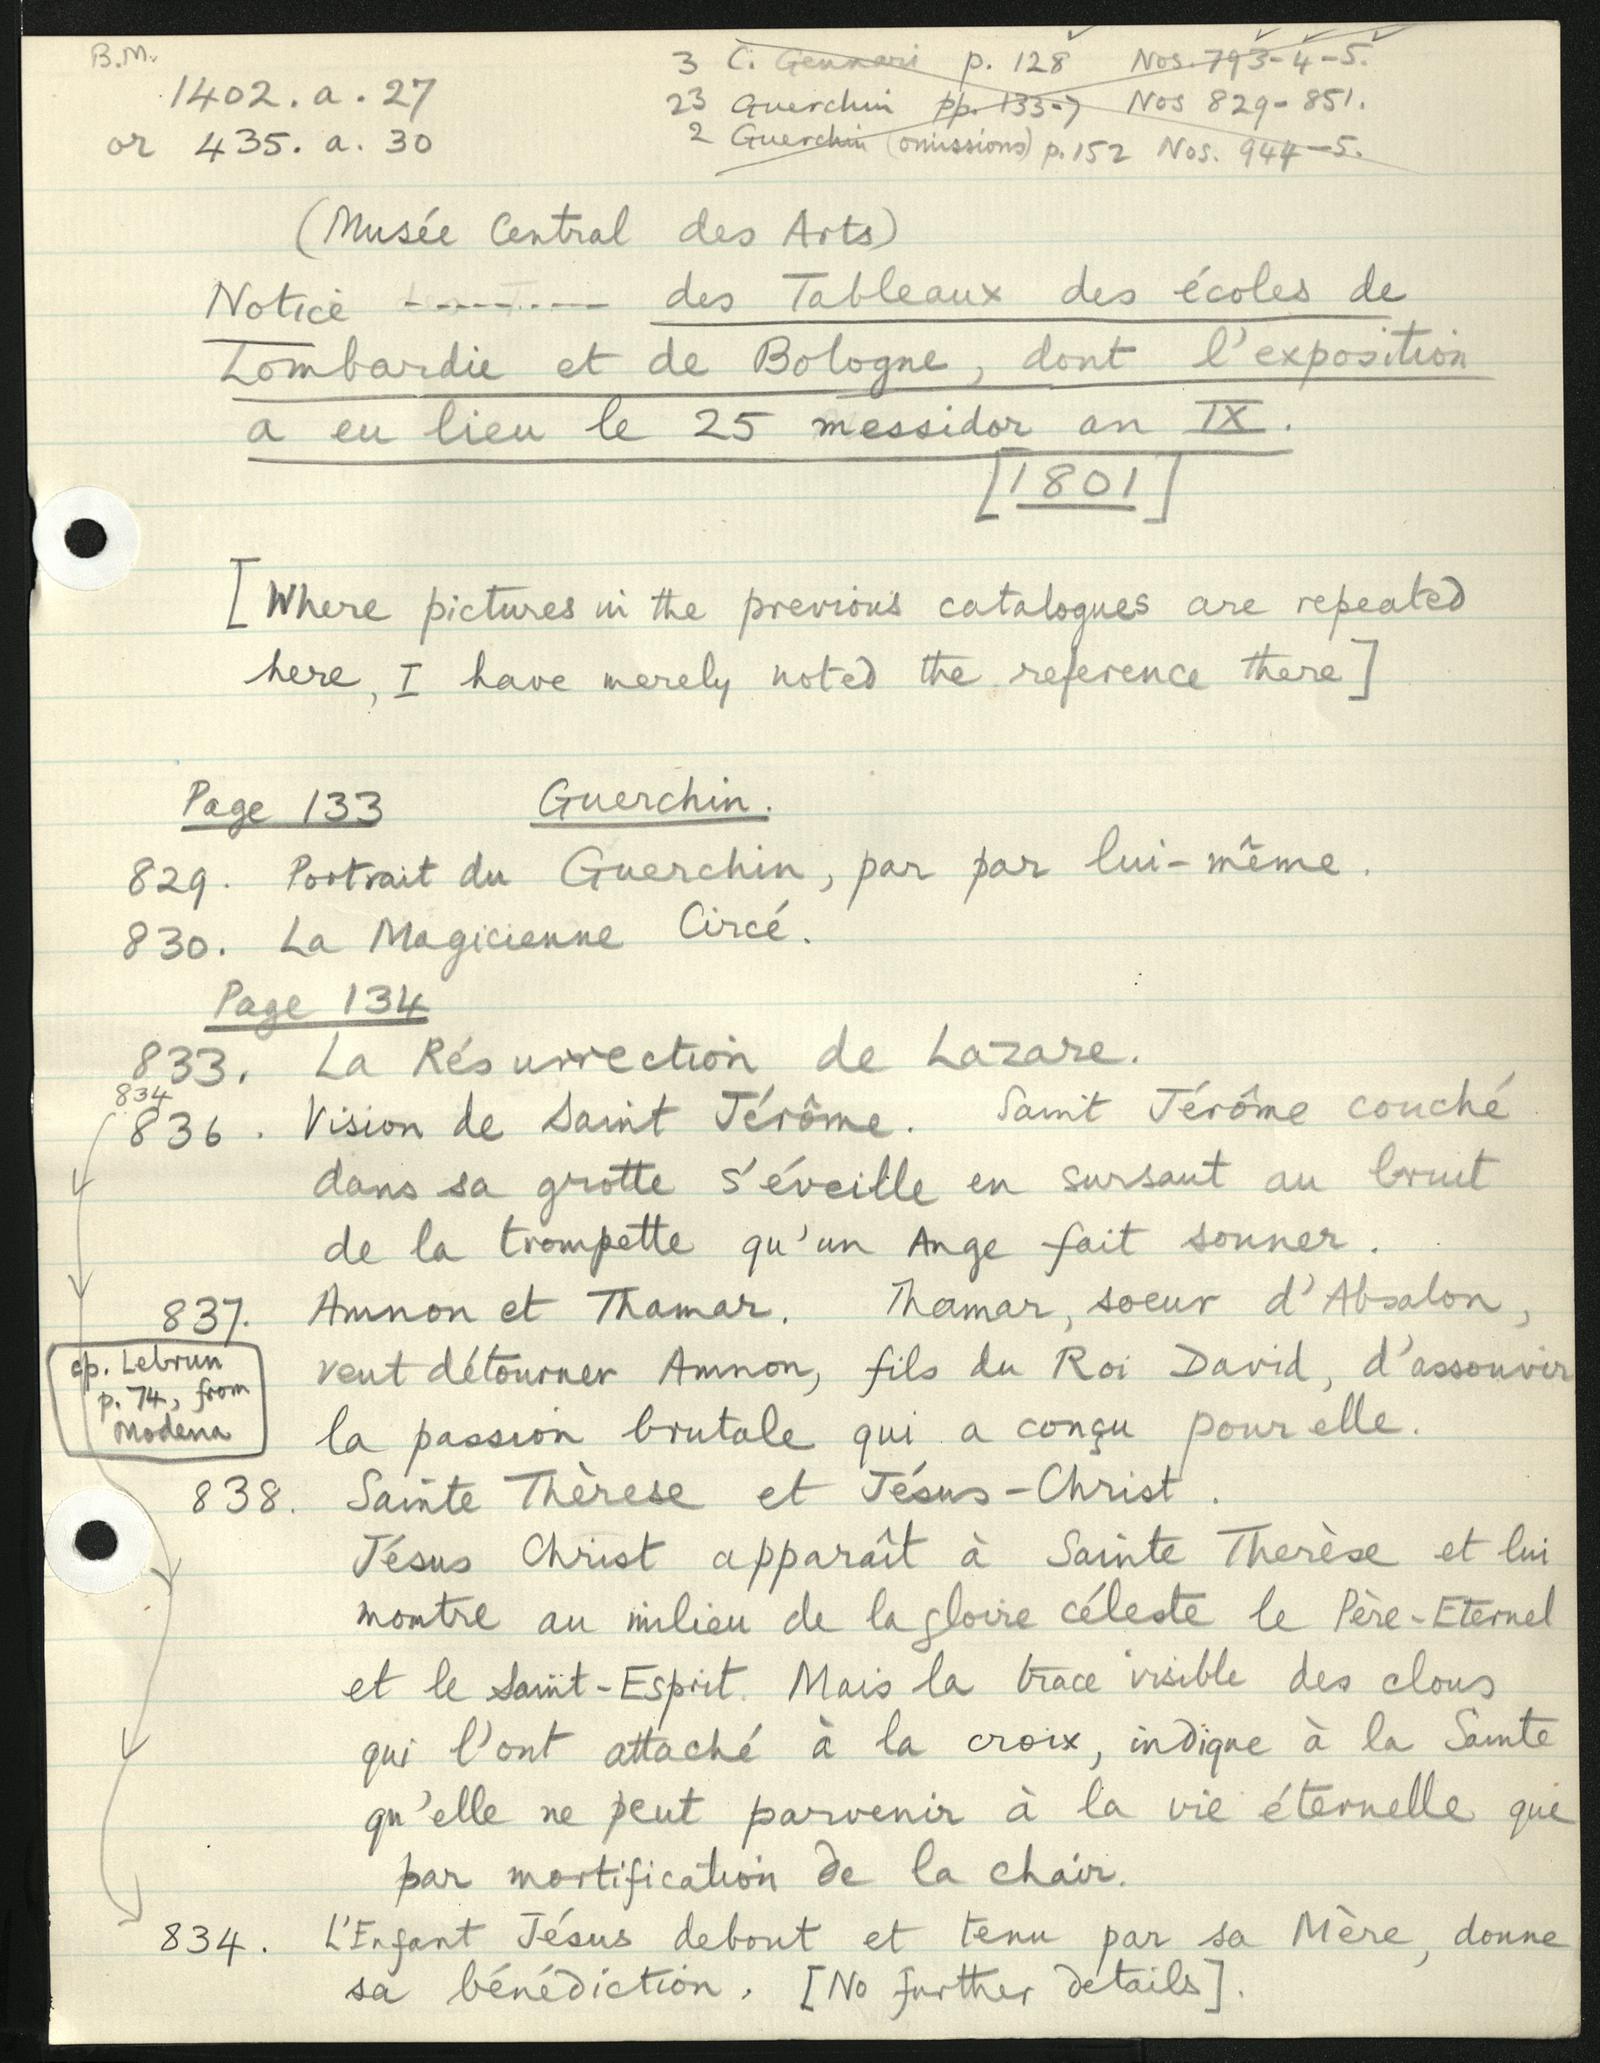 B.M.
1402. a. 27
or 435. a. 30
3 C. Gennari p. 128 Nos. 793-4-5.
23 Guerchin pp. 133-7 Nos 829-851.
2 Guerchin (omissions) p. 152 Nos. 944-5.
(Musée Central des Arts)
Notice ------- des Tableaux des écoles de
Lombardie et de Bologne, dont l'exposition
a eu lieu le 25 messidor an IX.
[1801]
[Where pictures in the previous catalogues are repeated
here, I have merely noted the reference there]
Page 133 Guerchin.
829. Portrait du Guerchin, par par lui-même.
830. La Magicienne Circé.
Page 134
833. La Résurrection de Lazare.
834
836. Vision de Saint Jérôme. Saint Jérôme couché
dans sa grotte s'éveille en sursaut au bruit
de la trompette qu'un Ange fait sonner.
837. Amnon et Thamar. Thamar, soeur d'Absalon,
veut détourner Amnon, fils du Roi David, d'assouvir
la passion brutale qui a conçu pour elle.
cp. Lebrun
p. 74, from
Modena
838. Sainte Thèrese et Jésus-Christ.
Jésus Christ apparaît à Sainte Therèse et lui
montre au milieu de la gloire céleste le Père-Eternel
et le Saint-Esprit. Mais la trace visible des clous
qui l'ont attaché à la croix, indique à la Sainte
qu'elle ne peut parvenir à la vie éternelle que
par mortification de la chair.
834. L'Enfant Jésus debout et tenu par sa Mère, donne
sa bénédiction. [No further details].